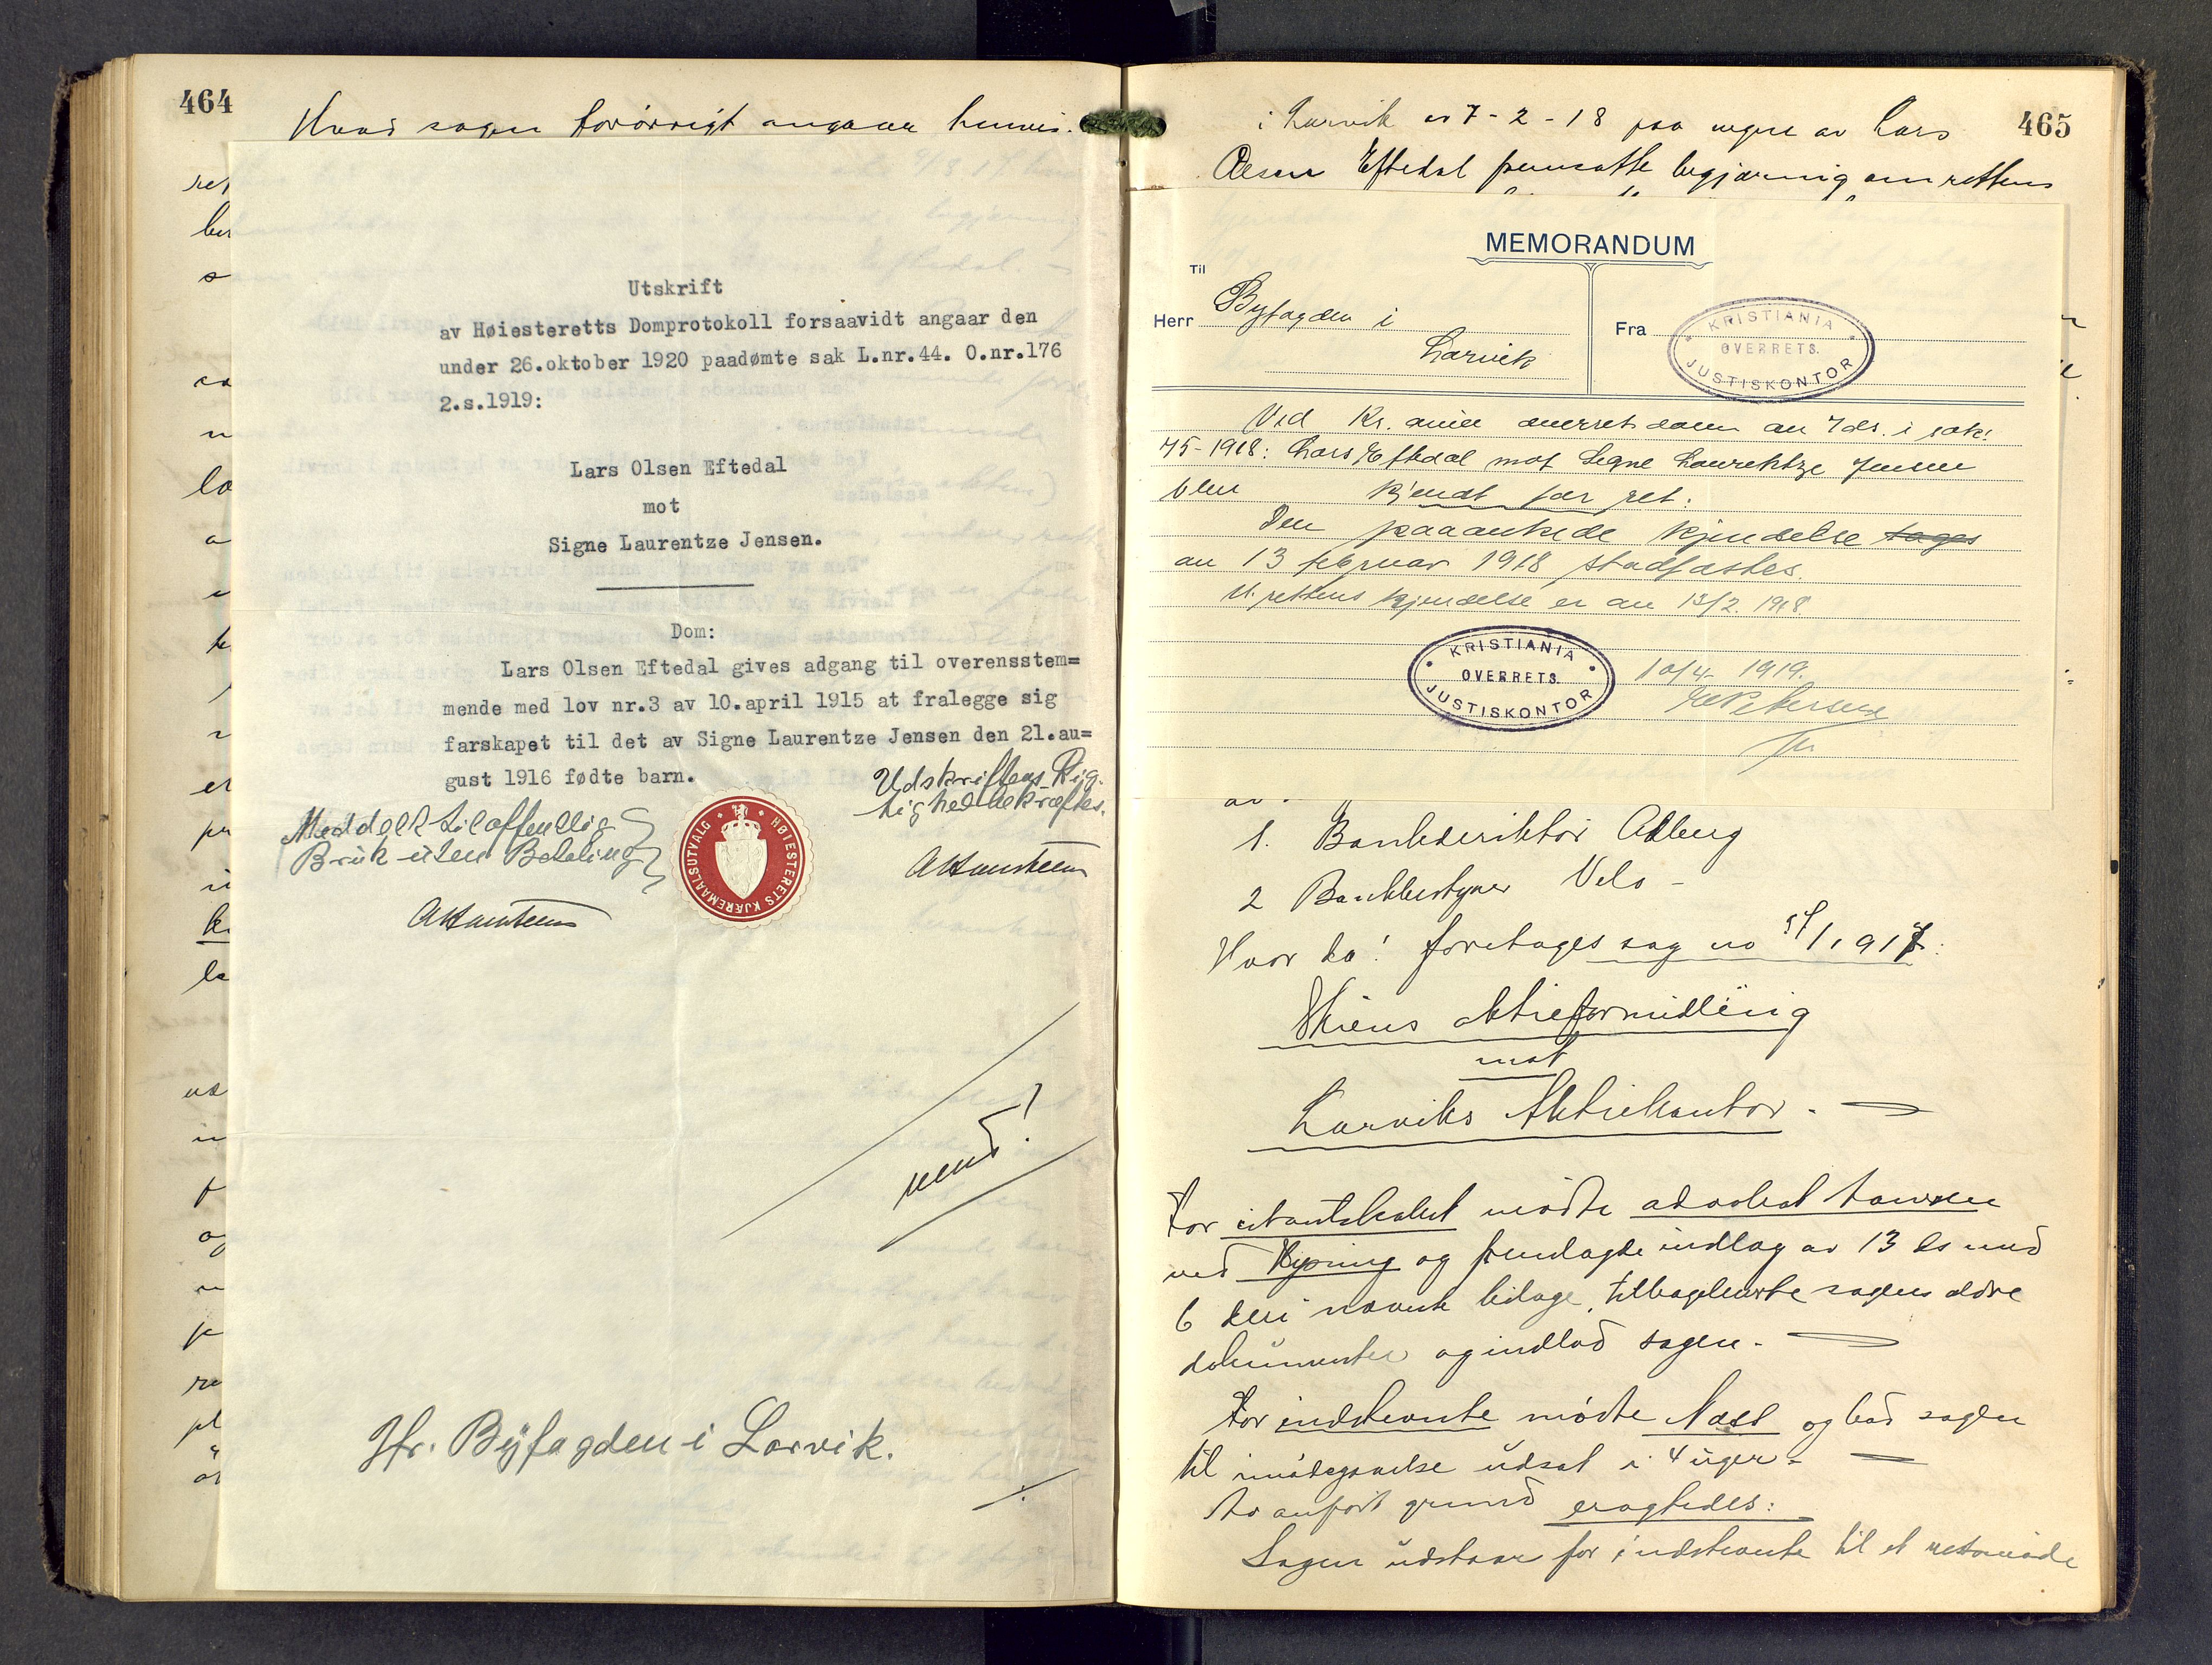 464
Hvad sagen forøvrigt angaar henvis-
Utskrift
av Høiesteretts Domprotokoll forsaavidt angaar den
under 26.oktober 1920 paadømte sak L.nr.44. O.nr.176
2.s.1919:
Lars Olsen Eftedal
mot
Signe Laurentze Jensen.
Dom:
Lars Olsen Eftedal gives adgang til overensstem=
mende med lov nr.3 av 10.april 1915 at fralegge sig
farskapet til det av Signe Laurentze Jensen den 21.au=
gust 1916 fødte barn.
Udskriftens Rig-
tighed bekræftes.
Meddelt til offentlig
Bruk uten Betaling
HØIESTERETS KJÆREMAALSUTVALG
vend!
Hr. Byfogden i Larvik.
465
i Larvik av 7-2-18 paa vegne av Lars
Olsen Eftedal fremsatte begjæring om rettens
MEMORANDUM
Til
Herr Byfogden i
Larvik
Fra
KRISTIANIA
OVERRETS.
JUSTISKONTOR
Ved Kr.ania overrets dom av 7 ds. i sak:
75-1918: Lars Eftedal mot Signe Laurentze Jensen
blev kjendt for ret:
Den paaankede kjendelse tages
av 13 februar 1918 stadfæstes.
U.rettens kjendelse er av 13/2. 1918
KRISTIANIA
OVERRETS.
JUSTISKONTOR
10/4 1919.
1. Bankdirektør
2 Bankbestyrer
Hvor da! foretages sag no 1917:
Skiens aktieformidling
mot
Larviks Aktiekontor.
For citantskabet mødte advokat
ved og fremlagde indlæg av 13 ds med
6 deri nævnte bilage, tilbageleverte sagens ældre
dokumenter og indlod sagen.
For indstevnte mødte Næss og bad sagen
til imødegaaelse udsat i 4 uger.
Av anført grund eragtedes:
Sagen udstaar for indstevnte til et retsmøde